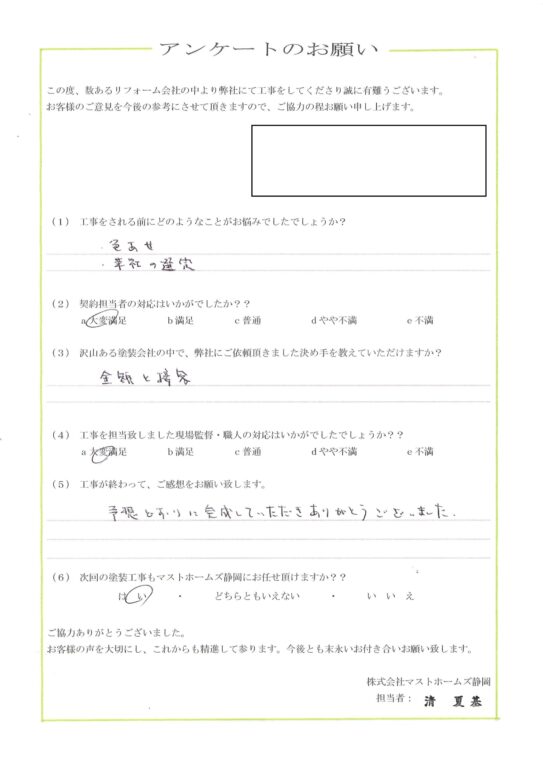 アンケートのお願い
この度、数あるリフォーム会社の中より弊社にて工事をしてくださり誠に有難うございます。
お客様のご意見を今後の参考にさせて頂きますので、ご協力の程お願い申し上げます。
(1) 工事をされる前にどのようなことがお悩みでしたでしょうか?
・色あせ
・業社の選定
(2) 契約担当者の対応はいかがでしたか??
a 大変満足 b 満足 c 普通 d やや不満 e 不満
(3) 沢山ある塗装会社の中で、弊社にご依頼頂きました決め手を教えていただけますか?
金額と接客
(4) 工事を担当致しました現場監督・職人の対応はいかがでしたでしょうか??
a 大変満足 b 満足 c 普通 d やや不満 e 不満
(5) 工事が終わって、ご感想をお願い致します。
予想どおりに完成していただきありがとうございました.
(6) 次回の塗装工事もマストホームズ静岡にお任せ頂けますか??
はい ・ どちらともいえない ・ いいえ
ご協力ありがとうございました。
お客様の声を大切にし、これからも精進して参ります。今後とも末永いお付き合いお願い致します。
株式会社マストホームズ静岡
担当者： 清 夏基